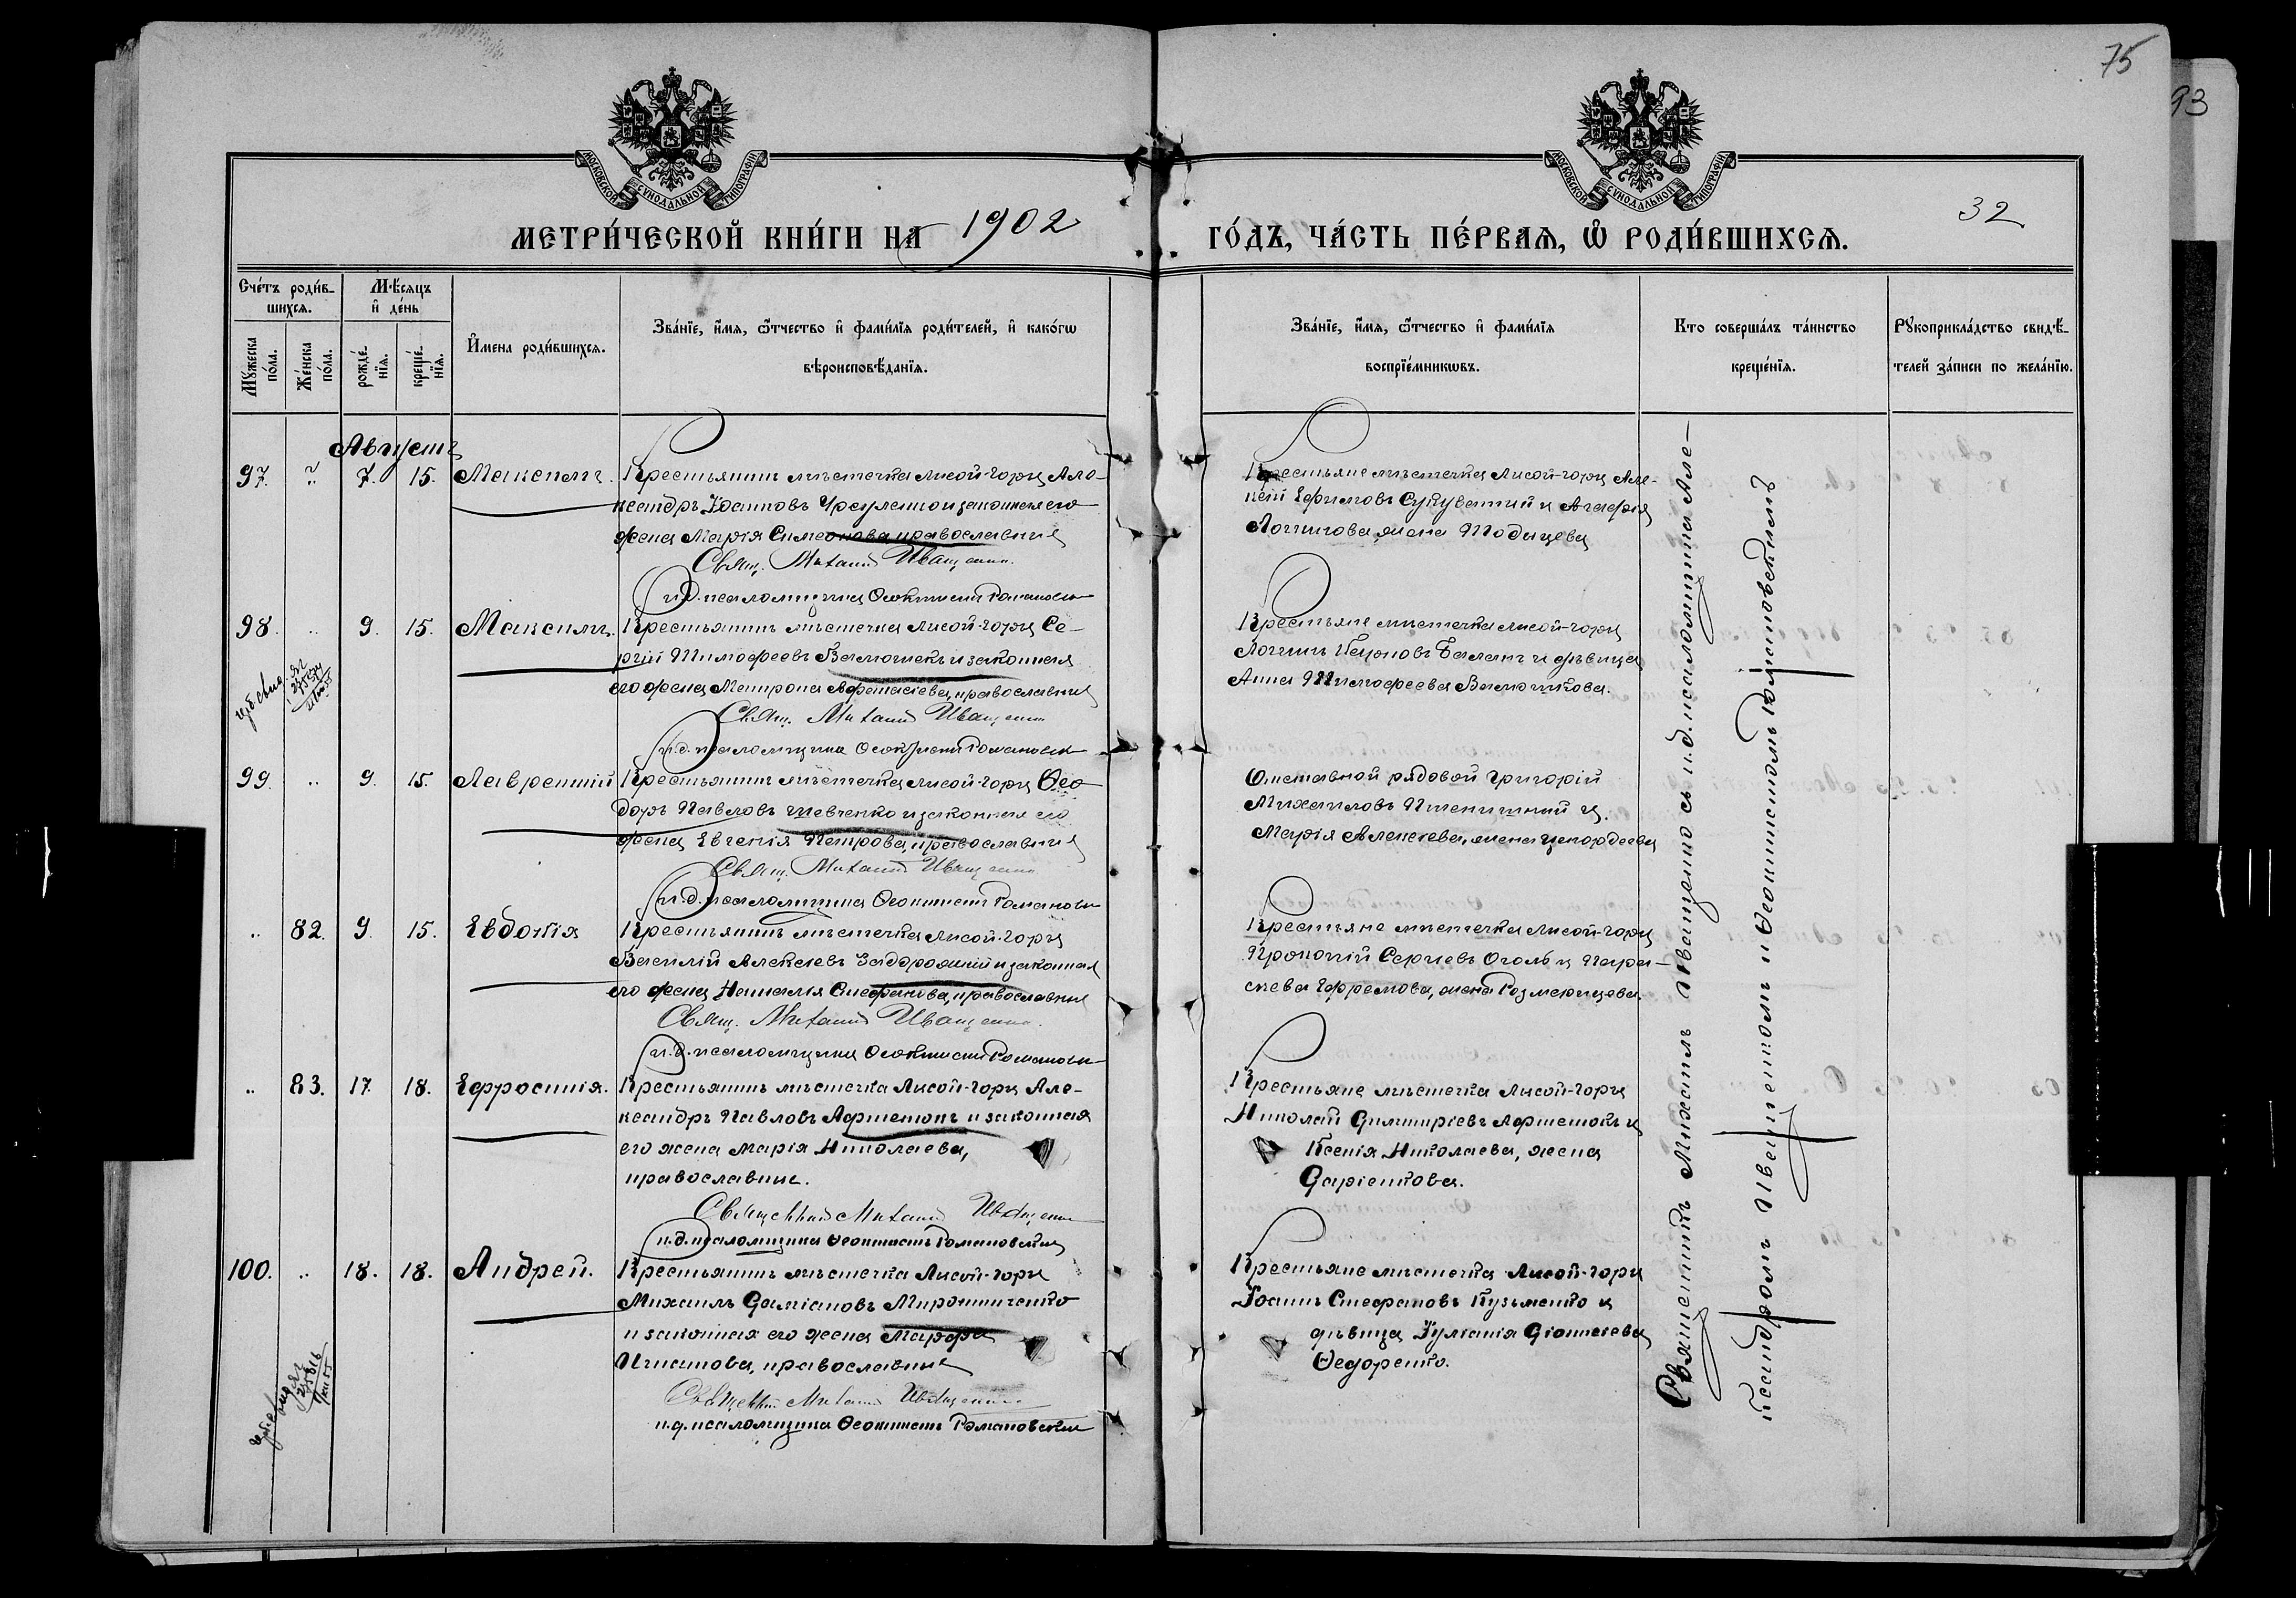 75
93
МОСКОВСКОЙ СѴНОДАЛЬНОЙ ТИПОГРАФІИ
МОСКОВСКОЙ СѴНОДАЛЬНОЙ ТИПОГРАФІИ
32
МЕТРИ́ЧЕСКОЙ КНИ́ГИ НА 1902 ГО́ДЪ, ЧА́СТЬ ПЕ́РВАЯ, Ѡ РОДИ́ВШИХСЯ.
Сче́тъ роди́в-
шихся.
Мѣ́сяцъ
и҆ де́нь
Мꙋ́жеска по́ла.
Же́нска по́ла.
рожде́-
нїя.
креще́-
нїя.
И҆мена роди́вшихся.
Зва́нїе, и҆́мя, ѻ҆́тчество и҆ фами́лїя роди́телей, и҆ како́гѡ
вѣроисповѣ́данїя.
Зва́нїе, и҆́мя, ѻ҆́тчество и҆ фами́лїя
воспрїе́мникѡвъ.
Кто соверша́лъ та́инство
креще́нїя.
Рꙋкоприкла́дство свидѣ́-
телей за́писи по жела́нїю.
Августъ
97. 7. 15. Максимъ.
Крестьянинъ мѣстечка Лысой-горы Але-
ксандръ Іоанновъ и законная его
жена Марія Симеонова, православные
Свящ. Михаилъ Иващенко.
и.д. псаломщика Ѳеоктистъ Романовскій
Крестьяне мѣстечка Лысой-горы Але-
ксѣй Ефимовъ и Агафія
Логгинова, жена
98. 9. 15. Максимъ.
Крестьянинъ мѣстечка Лысой-горы Се-
ргій Тимофеевъ и законная
его жена Матрона Афанасіева, православные
Свящ. Михаилъ Иващенко
и.д. псаломщика Ѳеоктистъ Романовскій
Крестьяне мѣстечка Лысой-горы
Логгинъ Баланъ и дѣвица
Анна Тимофеева
99. 9. 15. Лаврентій
Крестьянинъ мѣстечка Лысой-горы Ѳео-
доръ Павловъ Шевченко и законная его
жена Евгенія Петрова, православные
Свящ. Михаилъ Иващенко
и.д. псаломщика Ѳеоктистъ Романовскій
Отставной рядовой Григорій
Михаиловъ Пшеничный и
Марія Алексѣева, жена
82. 9. 15. Евдокія
Крестьянинъ мѣстечка Лысой-горы
Василій Алексѣевъ Задорожній и законная
его жена Наталія Стефанова, православные
Свящ. Михаилъ Иващенко.
и.д. псаломщика Ѳеоктистъ Романовскій
Крестьяне мѣстечка Лысой-горы
Прокопій Сергіевъ Оголь и Пара-
скева Ефремова, жена
83. 17. 18. Ефросинія.
Крестьянинъ мѣстечка Лысой-горы Але-
ксандръ Павловъ Афтетонъ и законная
его жена Марія Николаева,
православные.
Священникъ Михаилъ Иващенко
и.д. псаломщика Ѳеоктистъ Романовскій
Крестьяне мѣстечка Лысой-горы
Николай Димитріевъ и
Ксенія Николаева, жена
Даріенкова.
100. 18. 18. Андрей.
Крестьянинъ мѣстечка Лысой-горы
Михаилъ Даміановъ Мирошниченко
и законная его жена Марфа
Игнатова, православные
Священникъ Михаилъ Иващенко
и.д. псаломщика Ѳеоктистъ Романовскій
Крестьяне мѣстечка Лысой-горы
Іоаннъ Стефановъ Кузьменко и
дѣвица Іуліанія
Ѳедоренко.
Священникъ Михаилъ Иващенко съ и.д. псаломщика Але-
ксандромъ Иващенкомъ и Ѳеоктистомъ Романовскимъ